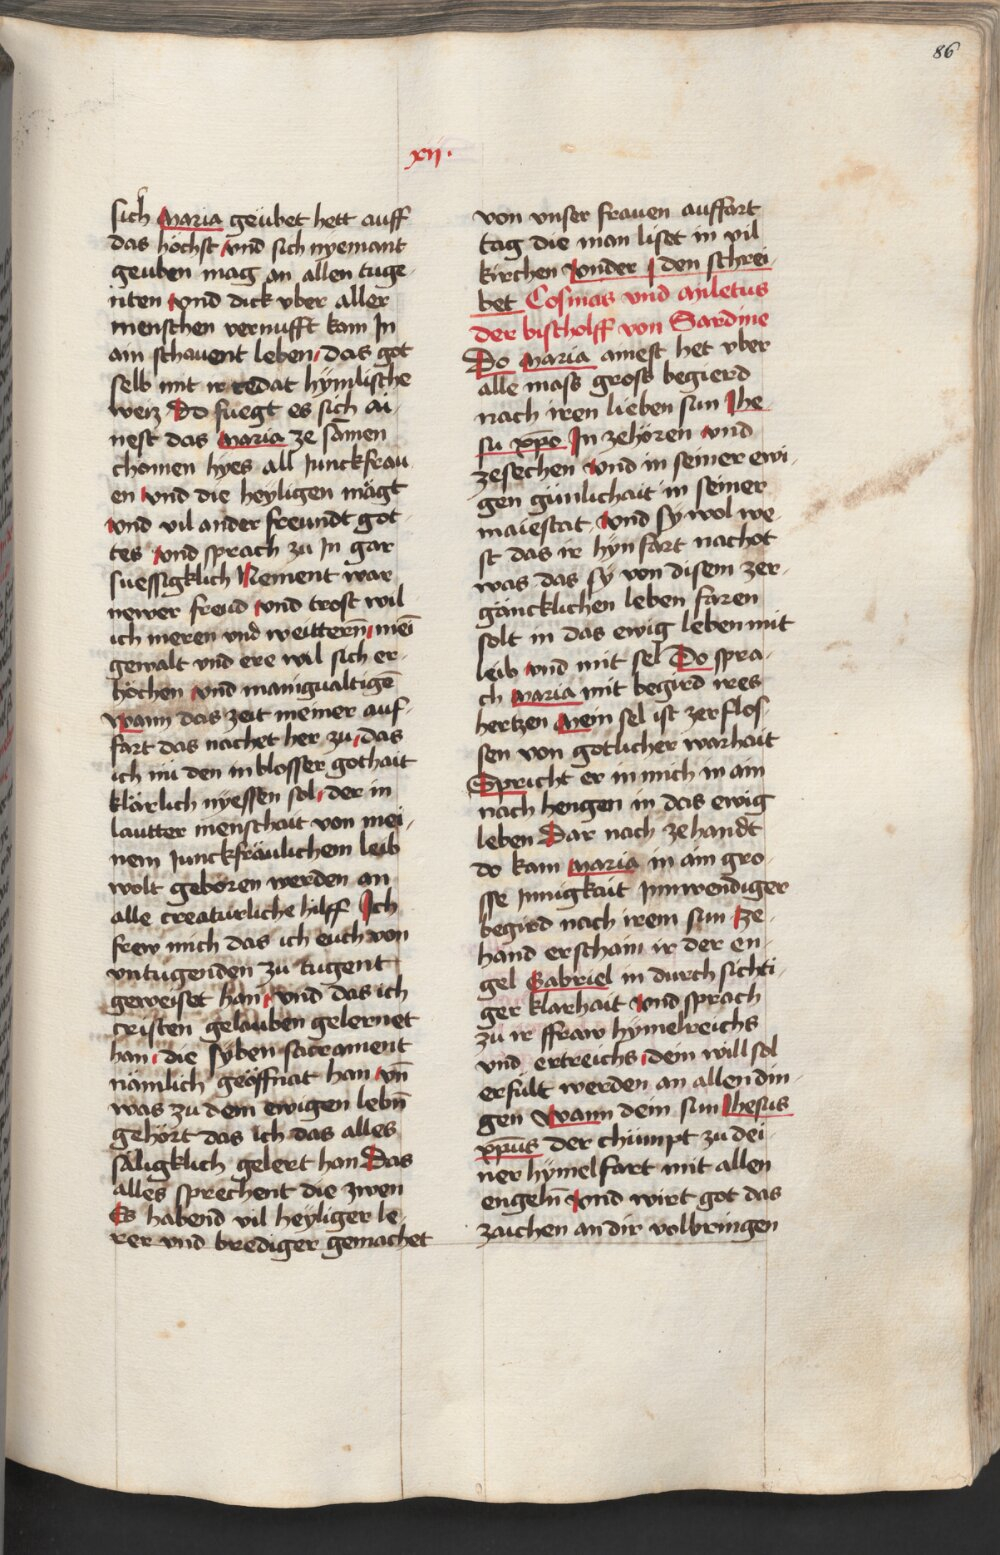 86
xij.
sich Maria geübet hett auff
das höchst vnd sich nyemant
geuben mag an allen tuge
nten vnd dick vber aller
menschen vernufft kam Jn
ain schauent leben das got
selb mit ir redat hymlische
weiz Do fuegt es sich ai-
nest das Maria ze samen
chomen hyes all Junckfrau
en vnd die heyligen mägt
vnd vil ander freundt got-
tes vnd sprach zu Jn gar
suessigklich Nement war
newer freud vnd trost wil
ich meren vnd weittern̄ mei̅
gewalt vnd ere wil sich er-
höchen vnd manigualtige̅
Wann das zeit meiner auf-
fart das nachet her zu das
ich nu den in blosser gothait
klärlich nyessen sol der in
lautter menschait von mei-
nem Junckfräulichem leib
wolt geboren werden an
alle creaturliche hilff Jch
frew mich das ich euch von
vntugenden zu tugent
geweiset han vnd das ich
cristen gelauben gelernet
han die syben sacrament
nämlich geöffnat han vn̄
was zu dem ewigen lebn̄
gehört das ich das alles
säligklich gelert han Das
alles sprechent die zwen
Es habend vil heyliger le-
rer vnd brediger gemachet
von vnser frauen auffart
tag die man liset in vil
kirchen vnder den schrei-
bet Cosmas vnd Miletus
der bischolff von Sardine
Do Maria ainest het vber
alle mass gross begierd
nach iren lieben sun Jhe
su xp̅o Jn zehören vnd
zesechen vnd in seiner ewi-
gen günlichait in seiner
maiestat vnd sy wol we-
st das ir hyn fart nachot
was das sy von disem zer-
gäncklichen leben faren
solt in das ewig leben mit
leib vnd mit sel Do spra-
ch Maria mit begird ires
hertzen Mein sel ist zerflos-
sen von gotlicher warhait
Spricht er in mich in ain
nach hengen in das ewig
leben Dar nach zehandt
do kam Maria in ain gro-
sse Jnnigkait Jnnwendiger
begird nach irem sun ze-
hand erschain ir der en-
gel Gabriel in durch sichti-
ger klarhait vnd sprach
zu ir ffraw hymelreichs
vnd ertreichs dein will sol
erfült werden an allen din-
gen Wann dein sun Jhesus
xp̅us der chümpt zu dei-
ner hymel fart mit allen
engeln̄ vnd wirt got das
zaichen an dir volbringen